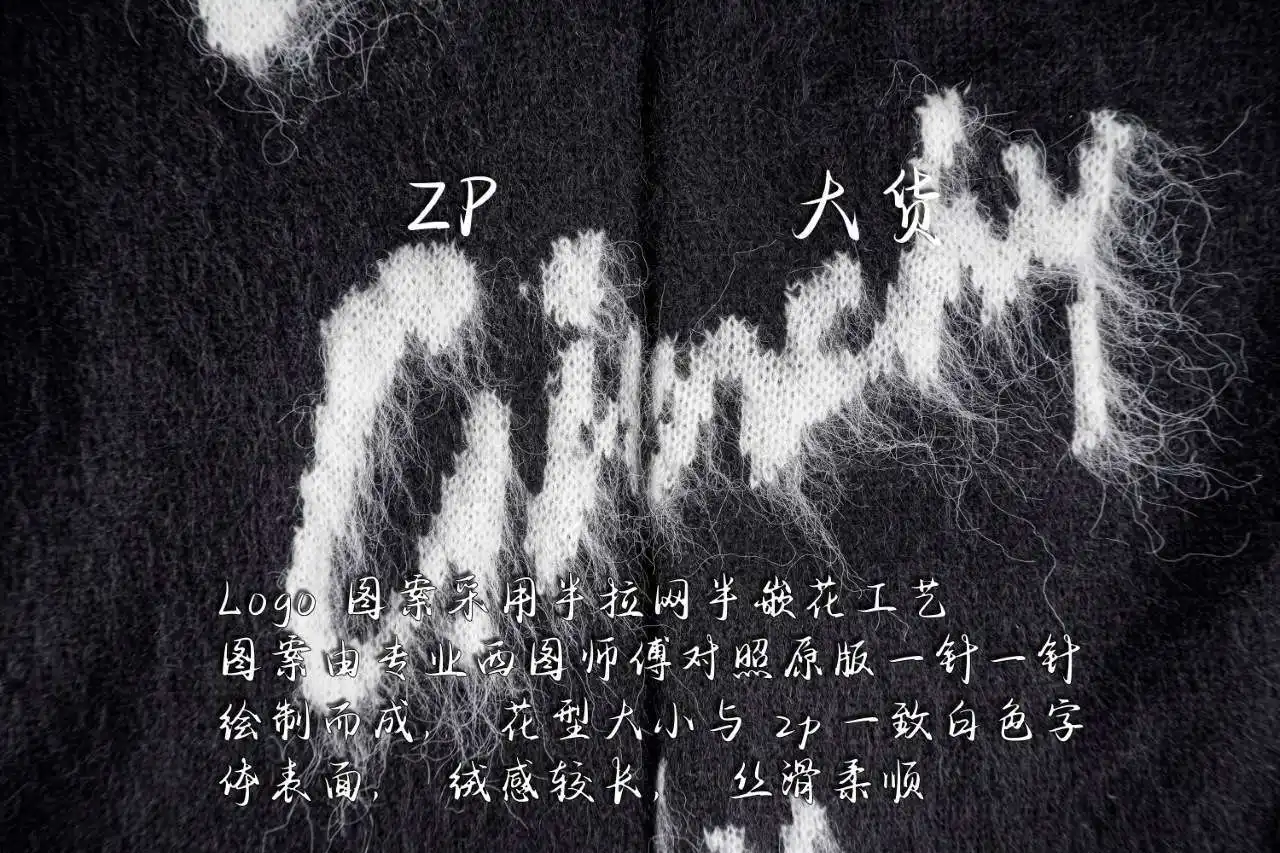 ZP
大货
Givenchy
Logo 图案采用半拉网半嵌花工艺
图案由专业画图师傅对照原版一针一针
绘制而成, 花型大小与 zp 一致白色字
体表面, 绒感较长, 丝滑柔顺